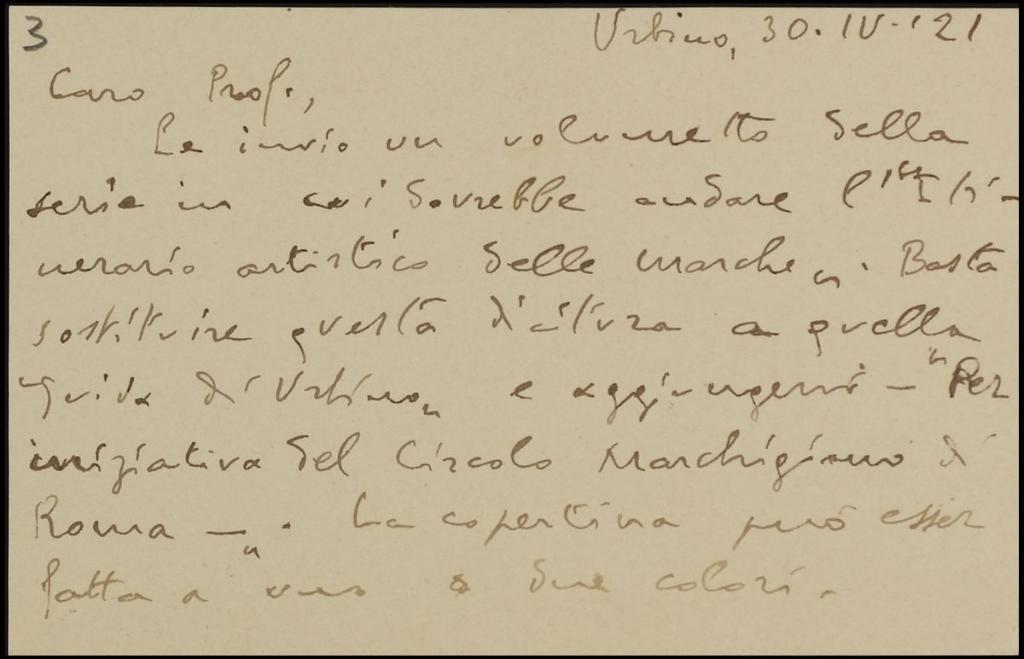 3
Urbino, 30. IV. '21
Caro Prof.,
Le invio un volumetto della
serie in cui dovrebbe andare l'"Iti-
nerario artistico delle Marche„. Basta
sostituire questa dicitura a quella
"Guida di Urbino„ e aggiungervi – "Per
iniziativa del Circolo Marchigiano di
Roma –„. La copertina può esser
fatta a uno o due colori.